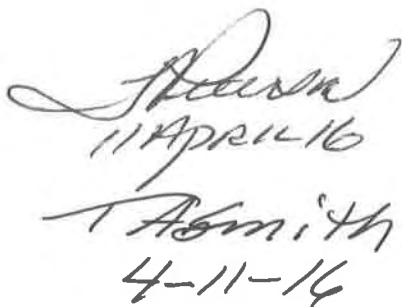 11 APRIL 16
TASmith
4-11-16